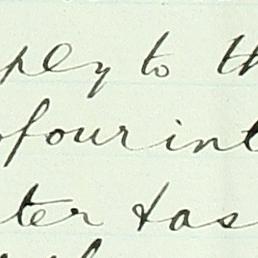 ply to th
of our int
ter has